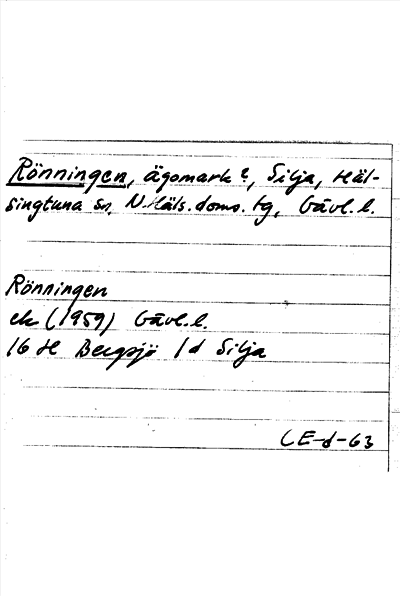 Rönningen, ägomark?, Silja, Häl-
singtuna sn, N.Häls.doms.tg, Gävl.l.
Rönningen
ek (1959) Gävl.l.
16 H Bergsjö 1d Silja
CE-d-63